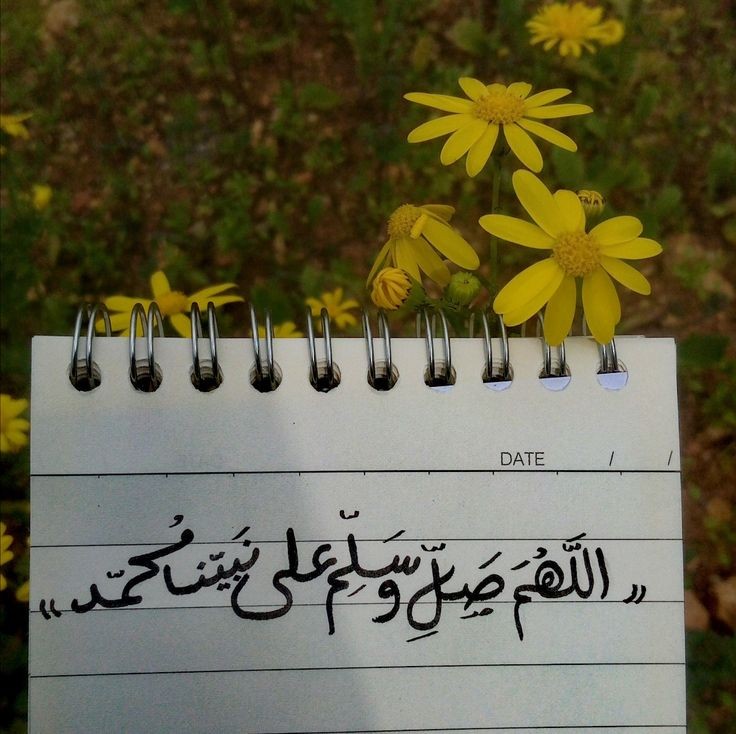 DATE / /
« اللَّهُمَ صَلِّ وَسَلِّم على نَبيّنا مُحمّد »